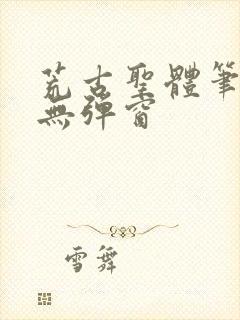 荒古聖體筆
無彈窗
雪舞